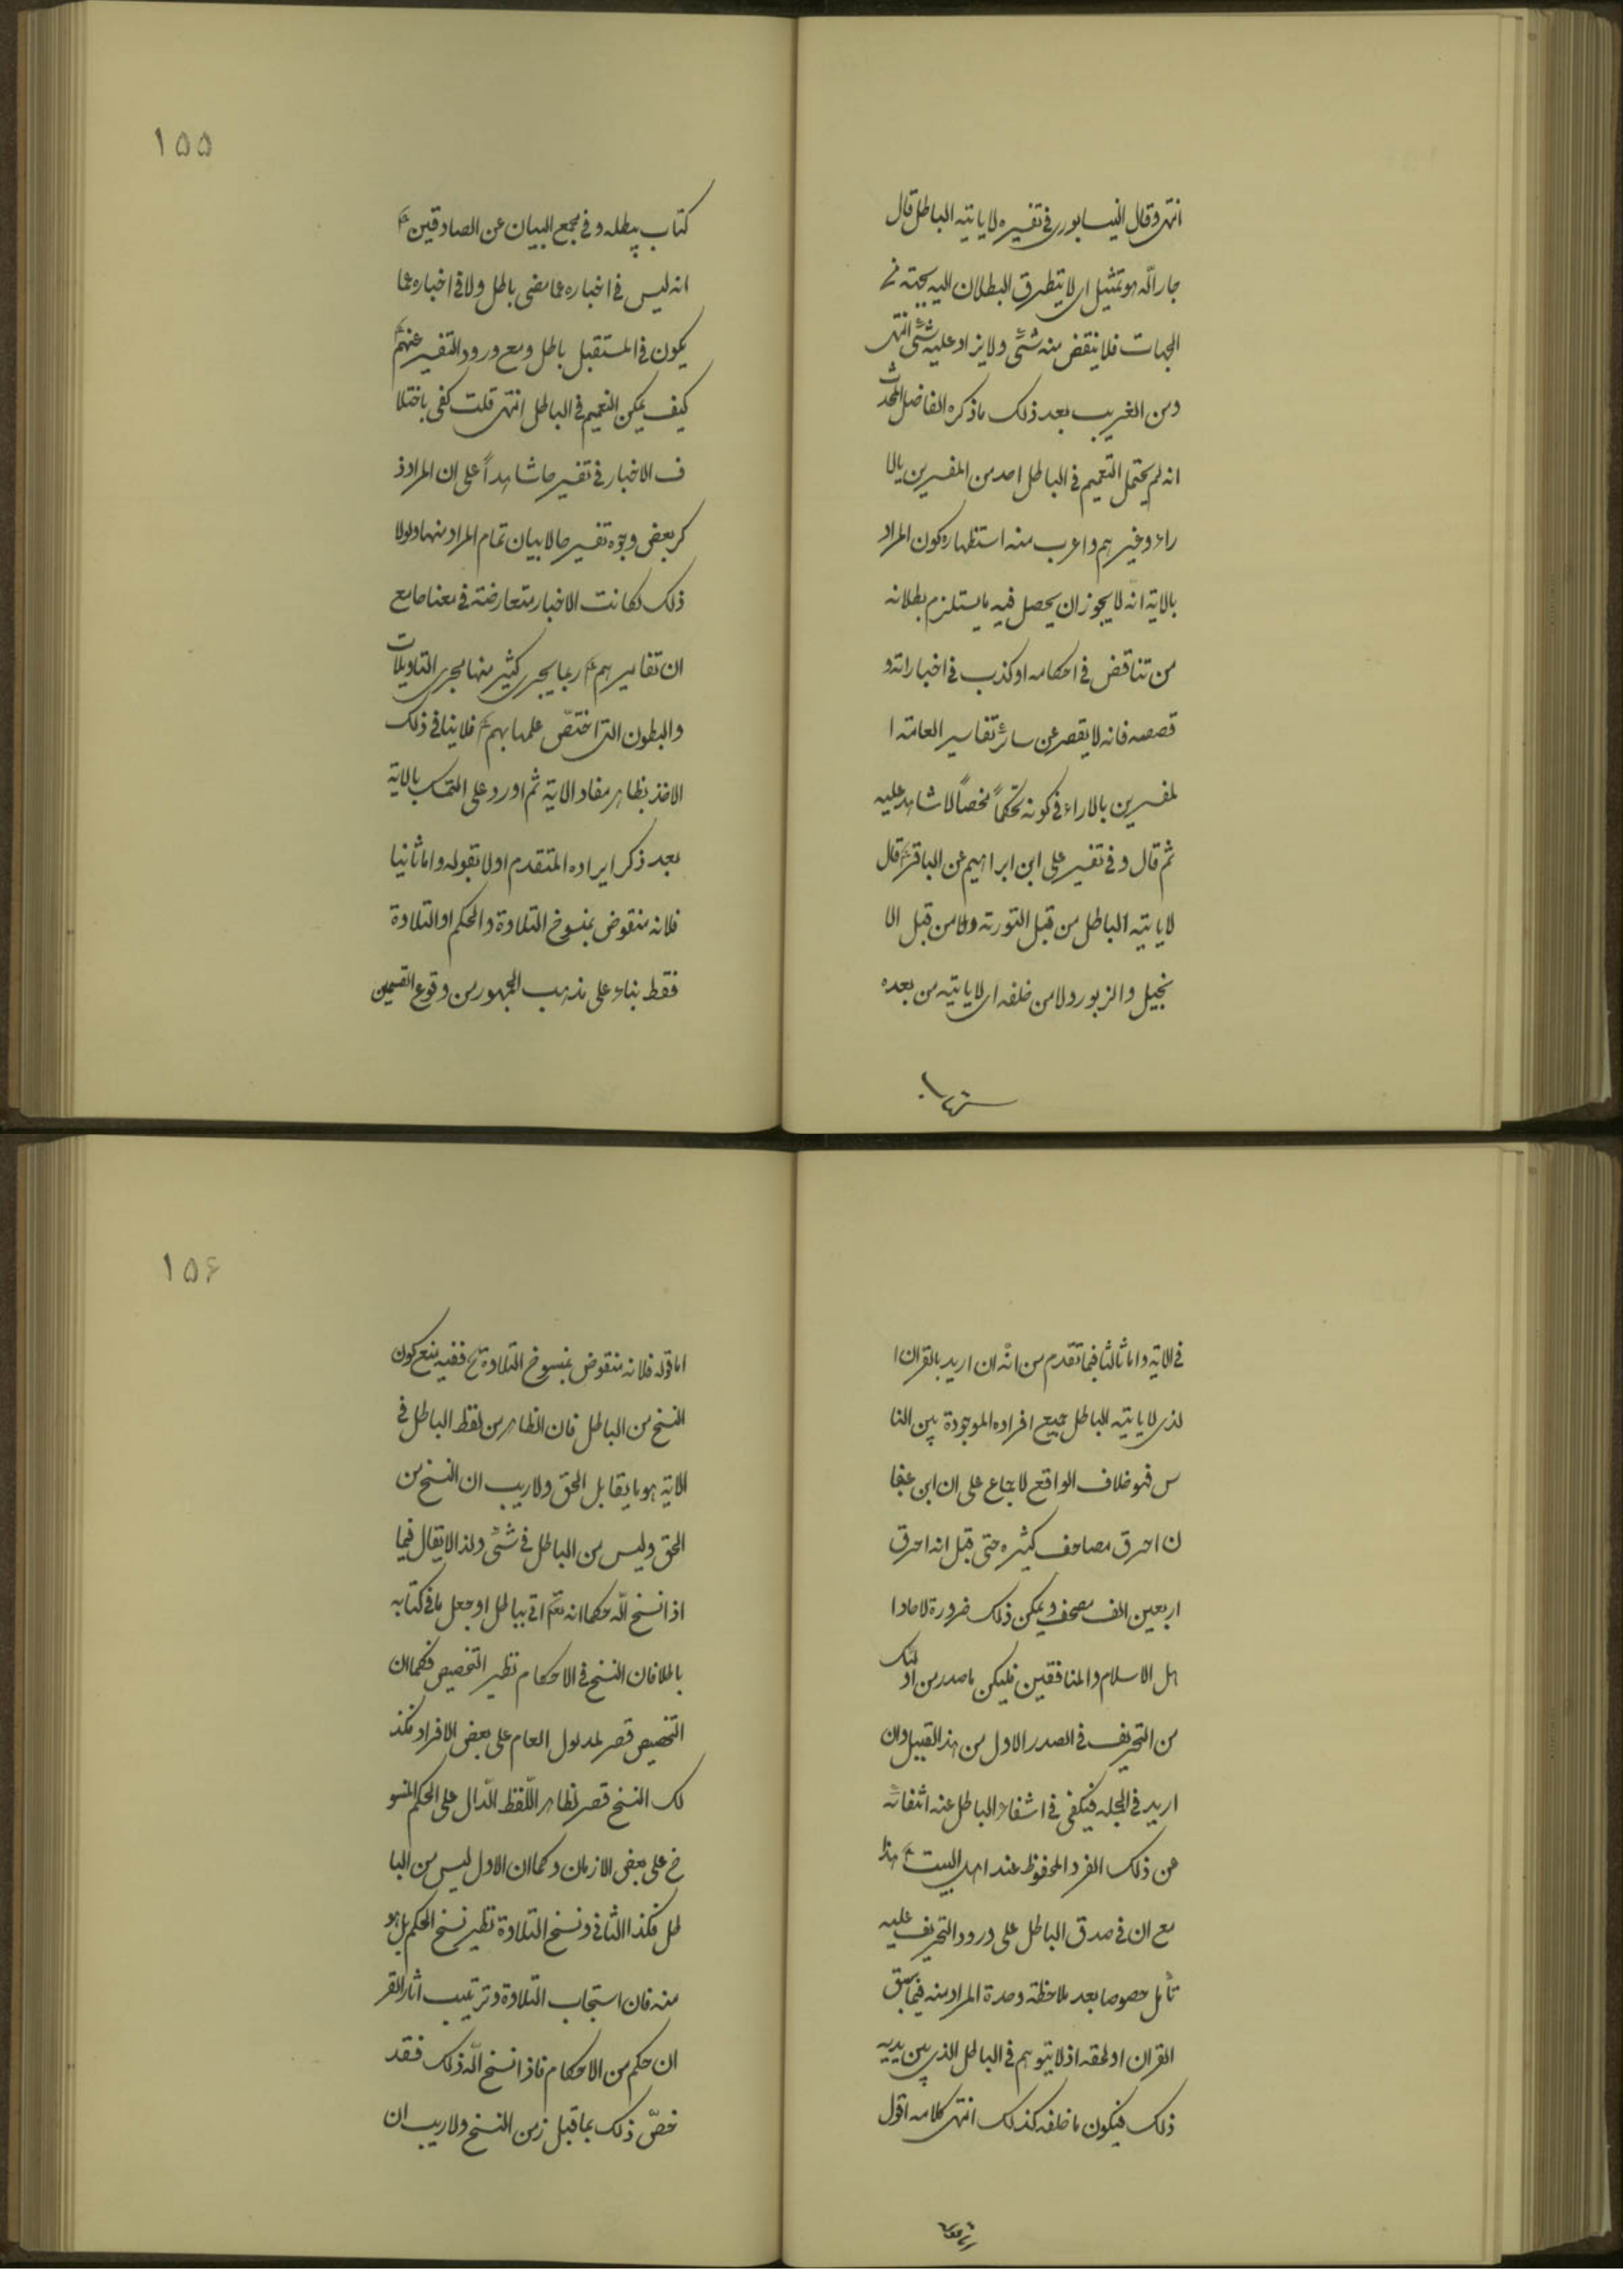 انتهى وقال النيسابورى فى تفسيره لا ياتيه الباطل قال
جار الله هو تمثيل اى لا يتطرق البطلان اليه بجهة من
الجهات فلا ينقض منه شئ ولا يزاد عليه شئ انتهى
ومن الغريب بعد ذلك ما ذكره الفاضل المحدث
انه لم يحتمل التعميم فى الباطل احد من المفسرين بالا
راء وغيرهم واغرب منه استظهاره كون المراد
بالاية انه لا يجوز ان يحصل فيه ما يستلزم بطلانه
من تناقض فى احكامه او كذب فى اخباراته و
قصصه فانه لا يقصر عن سائر تفاسير العامة ا
لمفسرين بالاراء فى كونه تحكماً محضاً لا شاهد عليه
ثم قال وفى تفسير على ابن ابراهيم عن الباقر ع قال
لا ياتيه الباطل من قبل التورية ولا من قبل الا
نجيل والزبور ولا من خلفه اى لا ياتيه من بعده
كتاب
كتاب يبطله وفى مجمع البيان عن الصادقين ع
انه ليس فى اخباره عما مضى باطل ولا فى اخباره عما
يكون فى المستقبل باطل ومع ورود التفسير عنهم
كيف يمكن التعميم فى الباطل انتهى قلت كفى باختلا
ف الاخبار فى تفسيرها شاهداً على ان المراد ذ
كر بعض وجوه تفسيرها لا بيان تمام المراد منها ولولا
ذلك لكانت الاخبار متعارضة فى معناها مع
ان تفاسيرهم ع ربما يجرى كثير منها مجرى التاويلات
والبطون التى اختصّ علمها بهم ع فلا ينافى ذلك
الاخذ بظاهر مفاد الاية ثم اورد على التمسك بالاية
بعد ذكر ايراده المتقدم اولا بقوله واما ثانيا
فلانه منقوض بمنسوخ التلاوة والحكم او التلاوة
فقط بناء على مذهب الجمهور من وقوع القسمين
١٥٥
فى الاية واما ثالثا فما تقدم من انه ان اريد بالقران ا
لذى لا ياتيه الباطل جميع افراده الموجودة بين النا
س فهو خلاف الواقع لاجماع على ان ابن عفا
ن احرق مصاحف كثيره حتى قيل انه احرق
اربعين الف مصحف ويمكن ذلك ضرورة لاحاد ا
هل الاسلام والمنافقين فليكن ما صدر من اولئك
من التحريف فى الصدر الاول من هذ القبيل وان
اريد فى الجمله فيكفى فى انتفاء الباطل عنه انتفائه
عن ذلك الفرد المحفوظ عند اهل البيت ع هذا
مع ان فى صدق الباطل على ورود التحريف عليه
تأمل خصوصا بعد ملاحظة وحدة المراد منه فيما سبق
القران او لحقه اذ لا يتوهم فى الباطل الذى بين يديه
ذلك فيكون ما خلفه كذلك انتهى كلامه اقول
اما قوله
اما قوله فلانه منقوض بمنسوخ التلاوة الخ ففيه منع كون
النسخ من الباطل فان الظاهر من لفظ الباطل فى
الاية هو ما يقابل الحق ولا ريب ان النسخ من
الحق وليس من الباطل فى شئ ولذا لا يقال فيما
اذا نسخ الله حكما انه تعم اتى بباطل او جعل ما فى كتابه
باطلا فان النسخ فى الاحكام نظير التخصيص فكما ان
التخصيص قصر لمدلول العام على بعض الافراد فكذ
لك النسخ قصر لظاهر اللّفظ الدّال على الحكم المنسو
خ على بعض الازمان وكما ان الاول ليس من البا
طل فكذا الثانى ونسخ التلاوة نظير نسخ الحكم بل هو
منه فان استحباب التلاوة وترتيب اثار القر
ان حكم من الاحكام فاذا نسخ الله ذلك فقد
خصّ ذلك بما قبل زمن النسخ ولا ريب ان
١٥۶